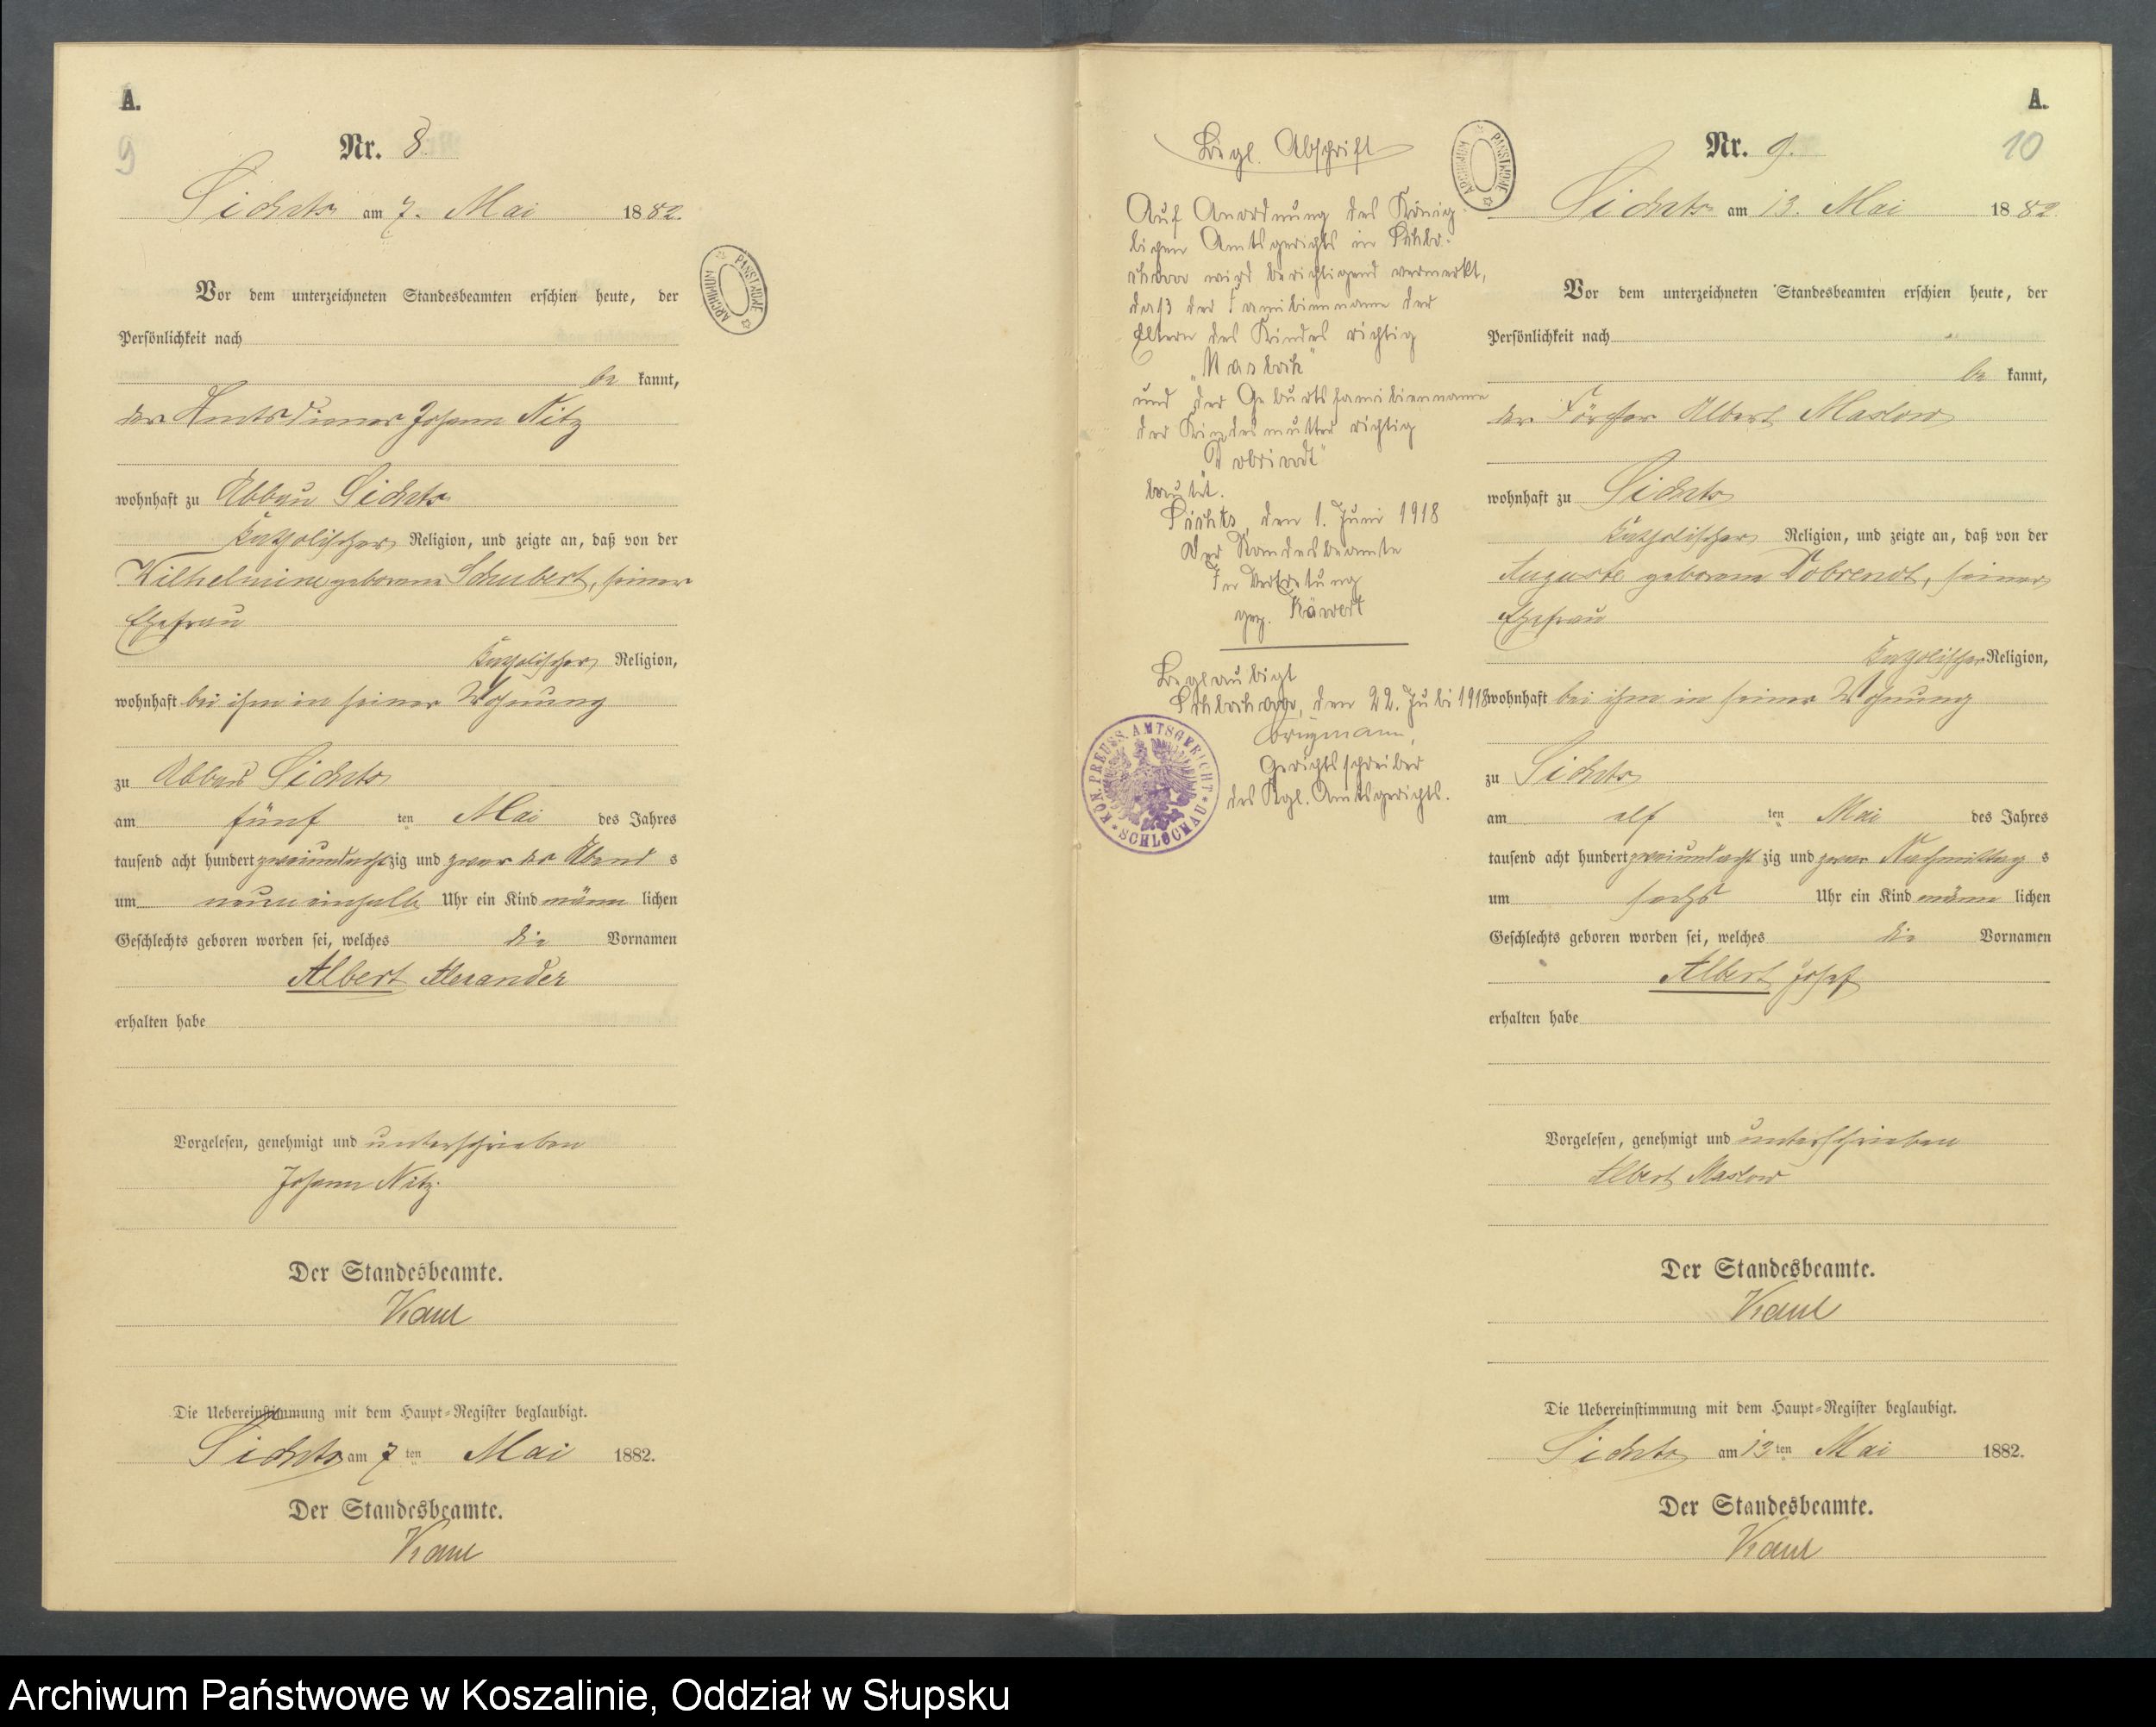 A.
9
Nr. 8.
Sichts am 7. Mai 1882.
Vor dem unterzeichneten Standesbeamten erschien heute, der
Persönlichkeit nach
be kannt,
der Amtsdiener Johann Nitz
wohnhaft zu Abbau Sichts
katholischer Religion, und zeigte an, daß von der
Wilhelmine geborene Schubert, seiner
Ehefrau
katholischer Religion,
wohnhaft bei ihm in seiner Wohnung
zu Abbau Sichts
am fünf ten Mai des Jahres
tausend acht hundert zweiundachtzig und zwar des Abend s
um neuneinhalb Uhr ein Kind männ lichen
Geschlechts geboren worden sei, welches die Vornamen
Albert Alexander
erhalten habe
Vorgelesen, genehmigt und unterschrieben
Johann Nitz.
Der Standesbeamte.
Die Uebereinstimmung mit dem Haupt-Register beglaubigt.
Sichts am 7 ten Mai 1882.
Der Standesbeamte.
ARCHIWUM PAŃSTWOWE
Begl. Abschrift
Auf Anordnung des König
lichen Amtsgerichts in Schlo-
chow wird berichtigend vermerkt,
daß der Familienname der
Eltern des Kindes richtig
"Masloch"
und der Geburtsfamilienname
der Kindesmutter richtig
lautet.
Sichts, den 1. Juni 1918
Der Standesbeamte
In Vertretung
gez.
Beglaubigt
Schlochau, den 22. Juli 1918
Gerichtsschreiber
des Kgl. Amtsgerichts.
KÖN. PREUSS. AMTSGERICHT
SCHLOCHAU
ARCHIWUM PAŃSTWOWE
A.
10
Nr. 9.
Sichts am 13. Mai 1882
Vor dem unterzeichneten Standesbeamten erschien heute, der
Persönlichkeit nach
be kannt,
der Förster Albert Maslow
wohnhaft zu Sichts
katholischer Religion, und zeigte an, daß von der
Auguste geborene Dobrendt, seiner
Ehefrau
katholischer Religion,
wohnhaft bei ihm in seiner Wohnung
zu Sichts
am elf ten Mai des Jahres
tausend acht hundert zweiundacht zig und zwar Nachmittag s
um sechs Uhr ein Kind männ lichen
Geschlechts geboren worden sei, welches die Vornamen
Albert Josef
erhalten habe
Vorgelesen, genehmigt und unterschrieben
Albert Maslow
Der Standesbeamte.
Die Uebereinstimmung mit dem Haupt-Register beglaubigt.
Sichts am 13 ten Mai 1882.
Der Standesbeamte.
Archiwum Państwowe w Koszalinie, Oddział w Słupsku